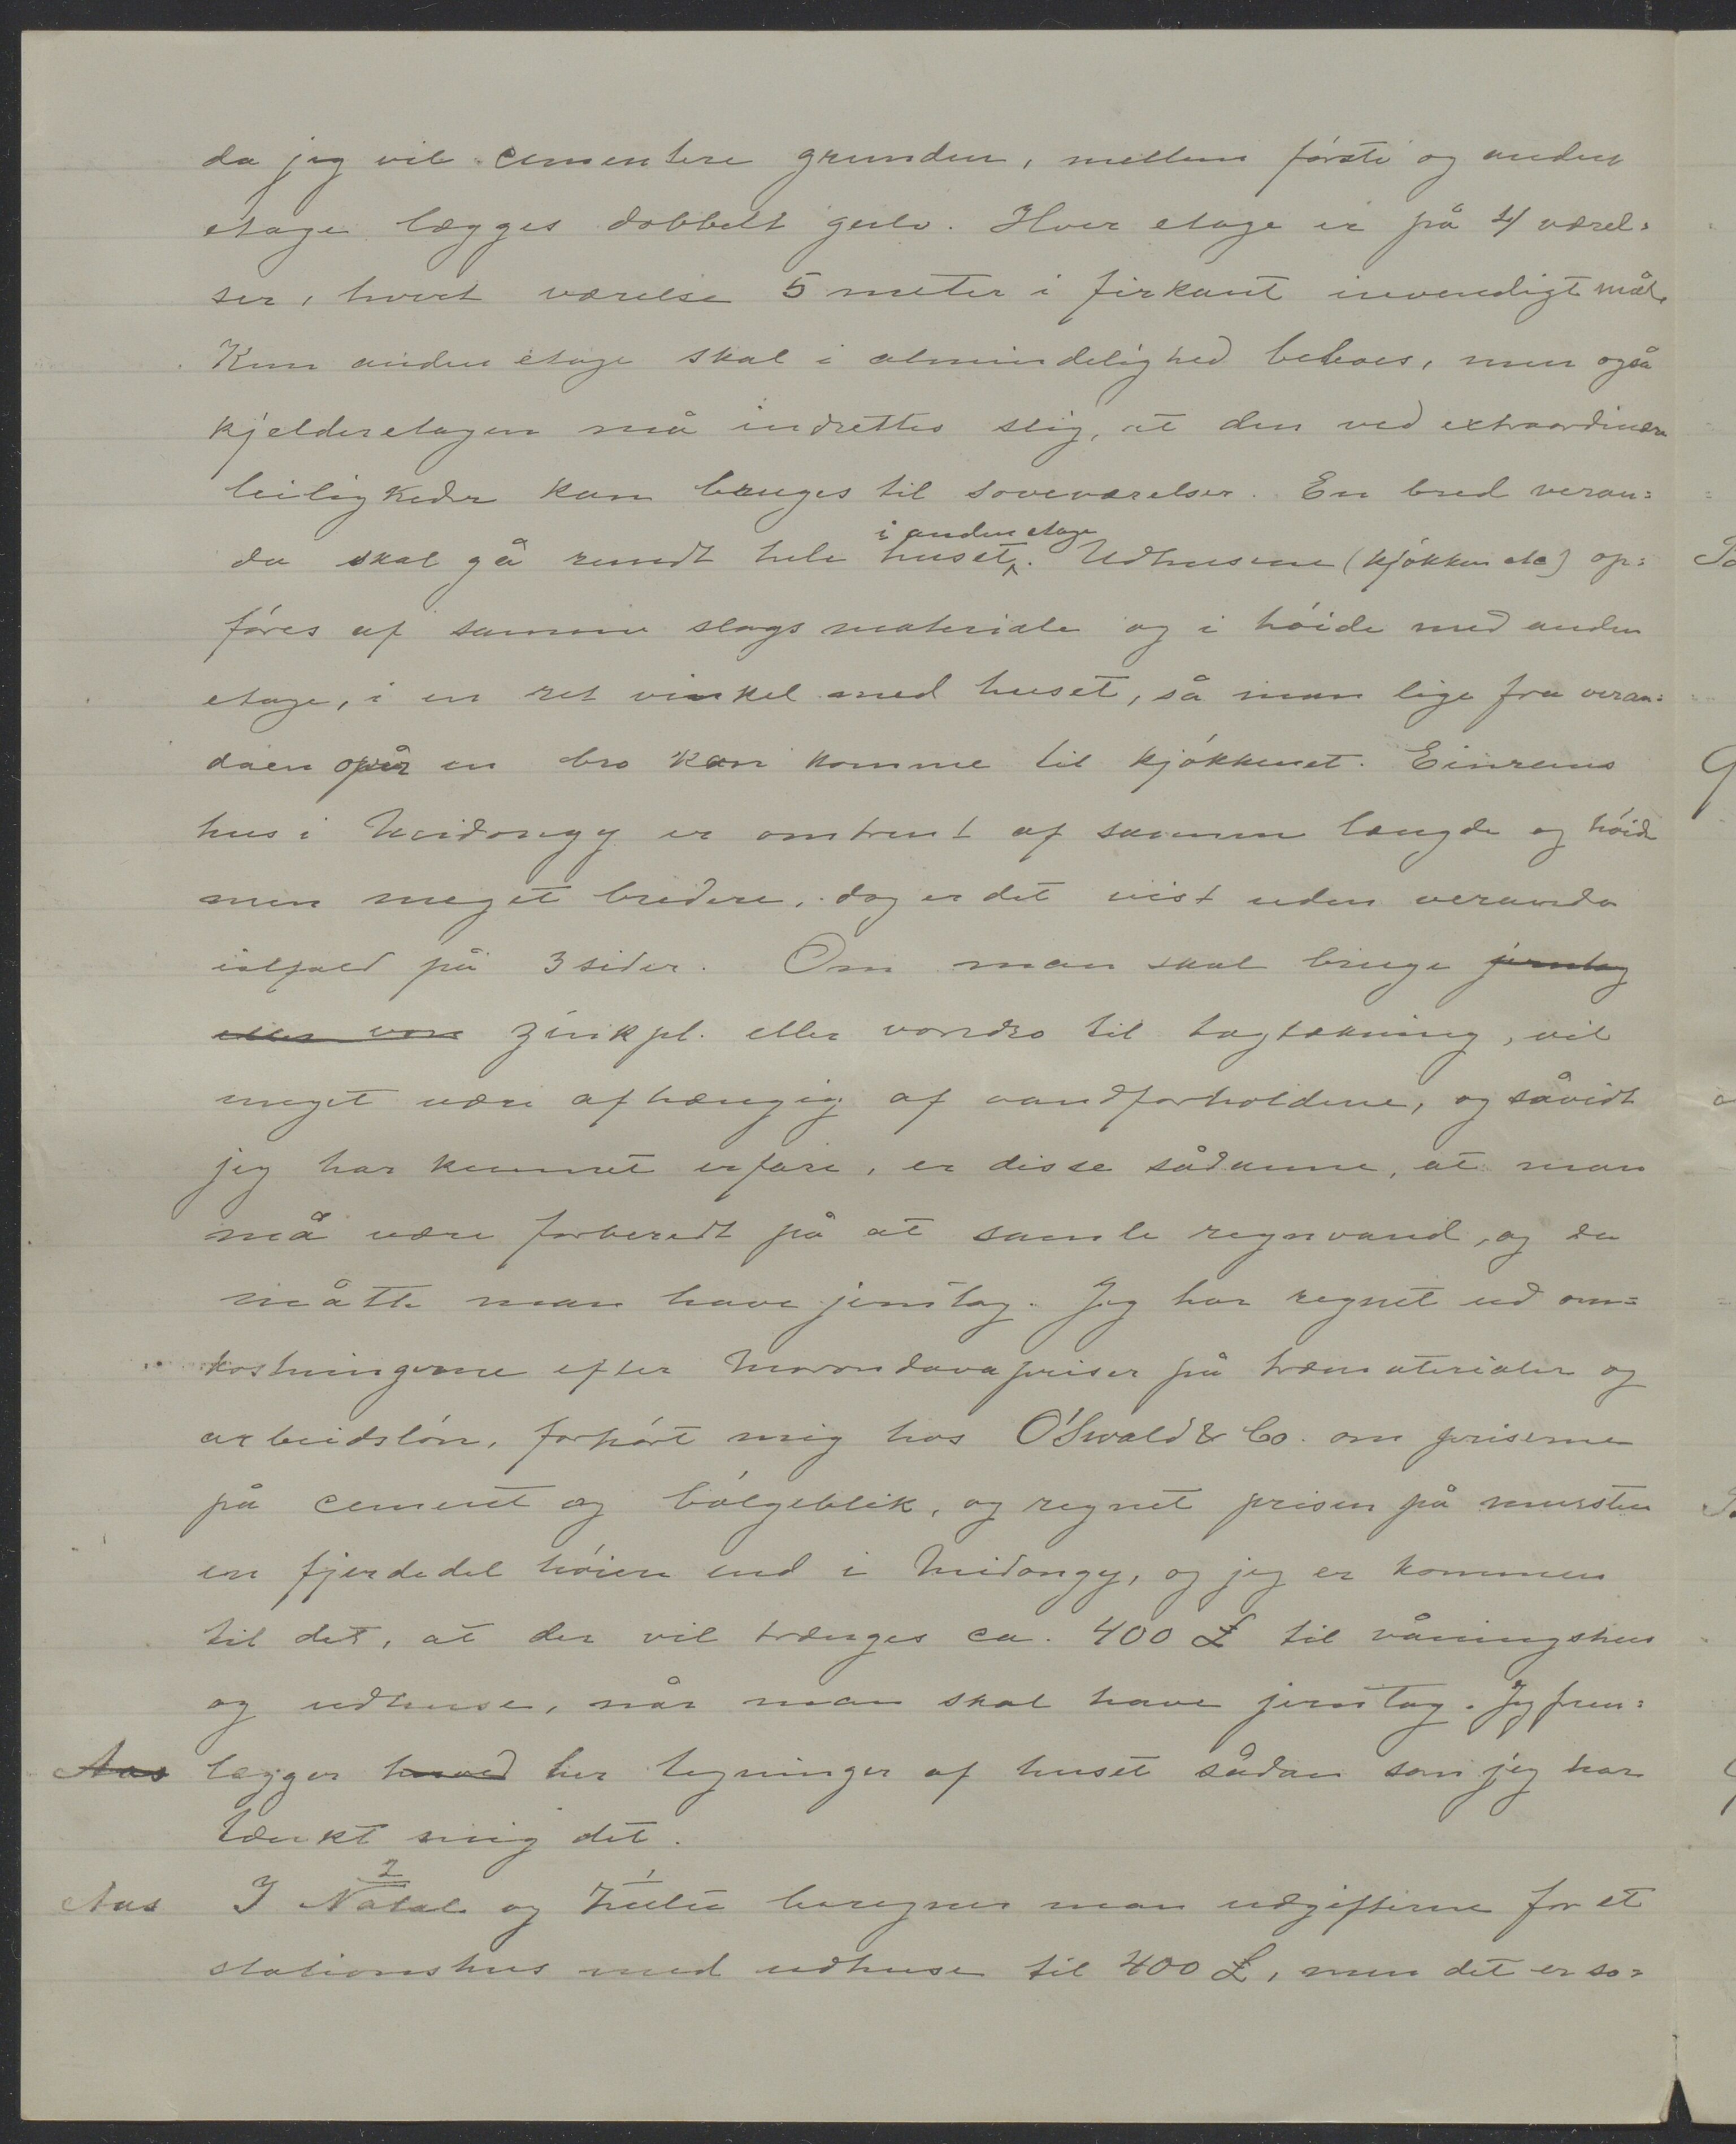 da jeg vil cementere grunden, mellem første og anden
etage lægges dobbelt gulv. Hver etage er på 4 værel-
ser, hvert værelse 5 meter i firkant invendigt mål.
Kun anden etage skal i almindelighed beboes, men også
kjelderetagen må indrettes slig, at den ved extraordinære
leiligheder kan bruges til soveværelser. En bred veran-
da skal gå rundt hele huset i anden etage. Udhusene (kjøkken etc) op-
føres af samme slags materiale og i høide med anden
etage, i en ret vinkel med huset, så man lige fra veran-
daen over en bro kan komme til kjøkkenet. Einrems
hus i Midongy er omtrent af samme længde og høide
men meget bredere, dog er det vist uden veranda
ialfald på 3 sider. Om man skal bruge jerntag
eller von zinkpl. eller vondro til tagtækning, vil
meget være afhængig af vandforholdene, og såvidt
jeg har kunnet erfare, er disse sådanne, at man
må være forberedt på at samle regnvand, og da
måtte man have jerntag. Jeg har regnet ud om-
kostningerne efter Morondavapriser på træmaterialer og
arbeidsløn, forhørt mig hos O'Swald & Co. om priserne
på cement og bølgeblik, og regnet prisen på mursten
en fjerdedel høiere end i Midongy, og jeg er kommen
til det, at der vil trænges ca. 400 £ til våningshus
og udhuse, når man skal have jerntag. Jeg frem-
Aas lægger herved her tegninger af huset sådan som jeg har
tænkt mig det.
Aas I Natal 2 og Zulu 1 beregner man udgifterne for et
stationshus med udhuse til 400 £, men det er so-